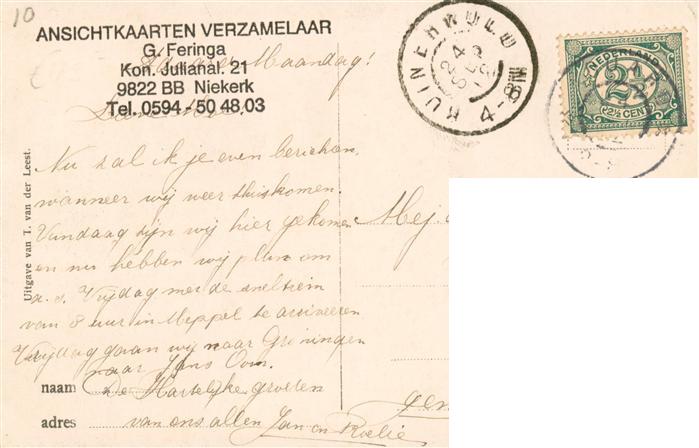 10
ANSICHTKAARTEN VERZAMELAAR
G. Feringa
Kon. Julianal. 21
9822 BB Niekerk
Tel. 0594 - 50 48 03
Maandag!
Nu zal ik je even berichten,
wanneer wij weer thuiskomen.
Vandaag zijn wij hier gekomen
en nu hebben wij plan om
a.s. Vrijdag met de sneltrein
van 8 uur in Meppel te arriveeren
Vrijdag gaan wij naar Groningen
naar Jans Oom.
naam De Hartelijke groeten
adres van ons allen Jan en Roelie
Uitgave van T. van der Leest.
RUINERWOLD
4-8
NEDERLAND
2½
2½ CENT
Mej.